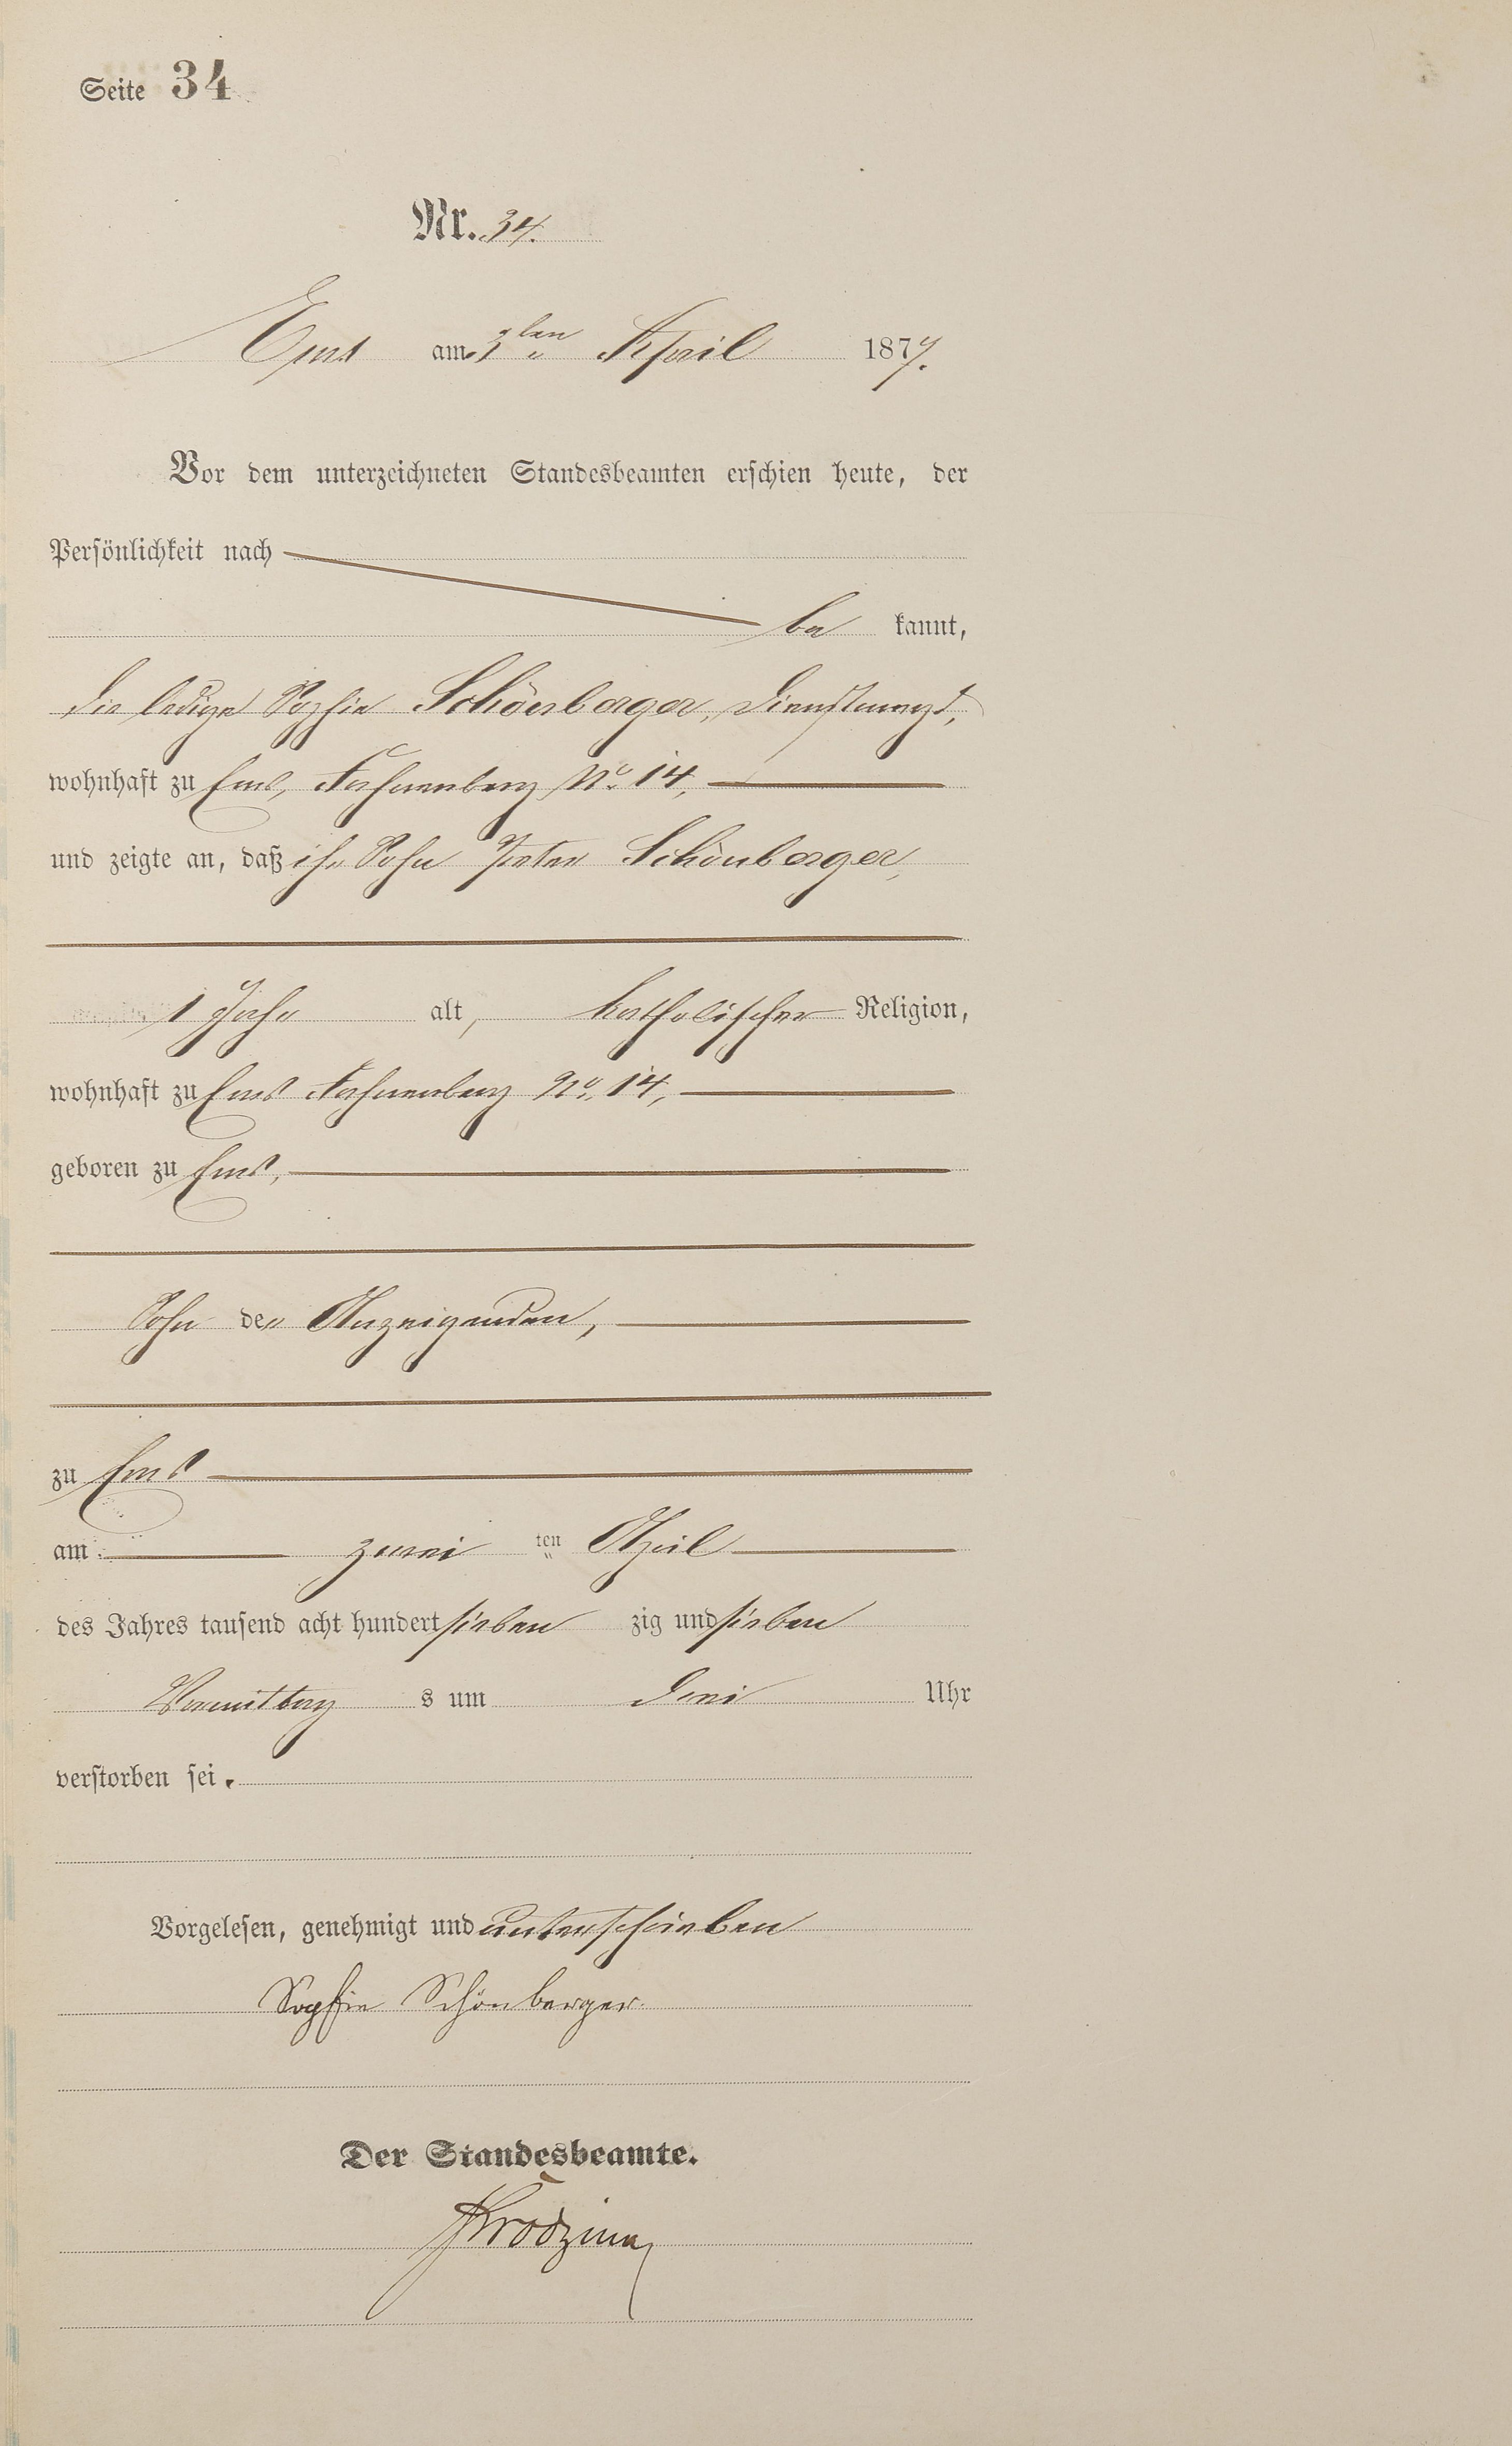 Seite 34
Nr. 34.
Ems am 3ten April 1877.
Vor dem unterzeichneten Standesbeamten erschien heute, der
Persönlichkeit nach
be kannt,
die ledige Sophie Schönberger, Dienstmagd,
wohnhaft zu Ems, No. 14,
und zeigte an, daß ihr Sohn Peter Schönberger,
1 Jahr alt, katholischer Religion,
wohnhaft zu Ems No. 14,
geboren zu Ems,
Sohn der Anzeigenden,
zu Ems
am zwei ten April
des Jahres tausend acht hundert sieben zig und sieben
Vormittag s um drei Uhr
verstorben sei.
Vorgelesen, genehmigt und unterschrieben
Sophie Schönberger.
Der Standesbeamte.